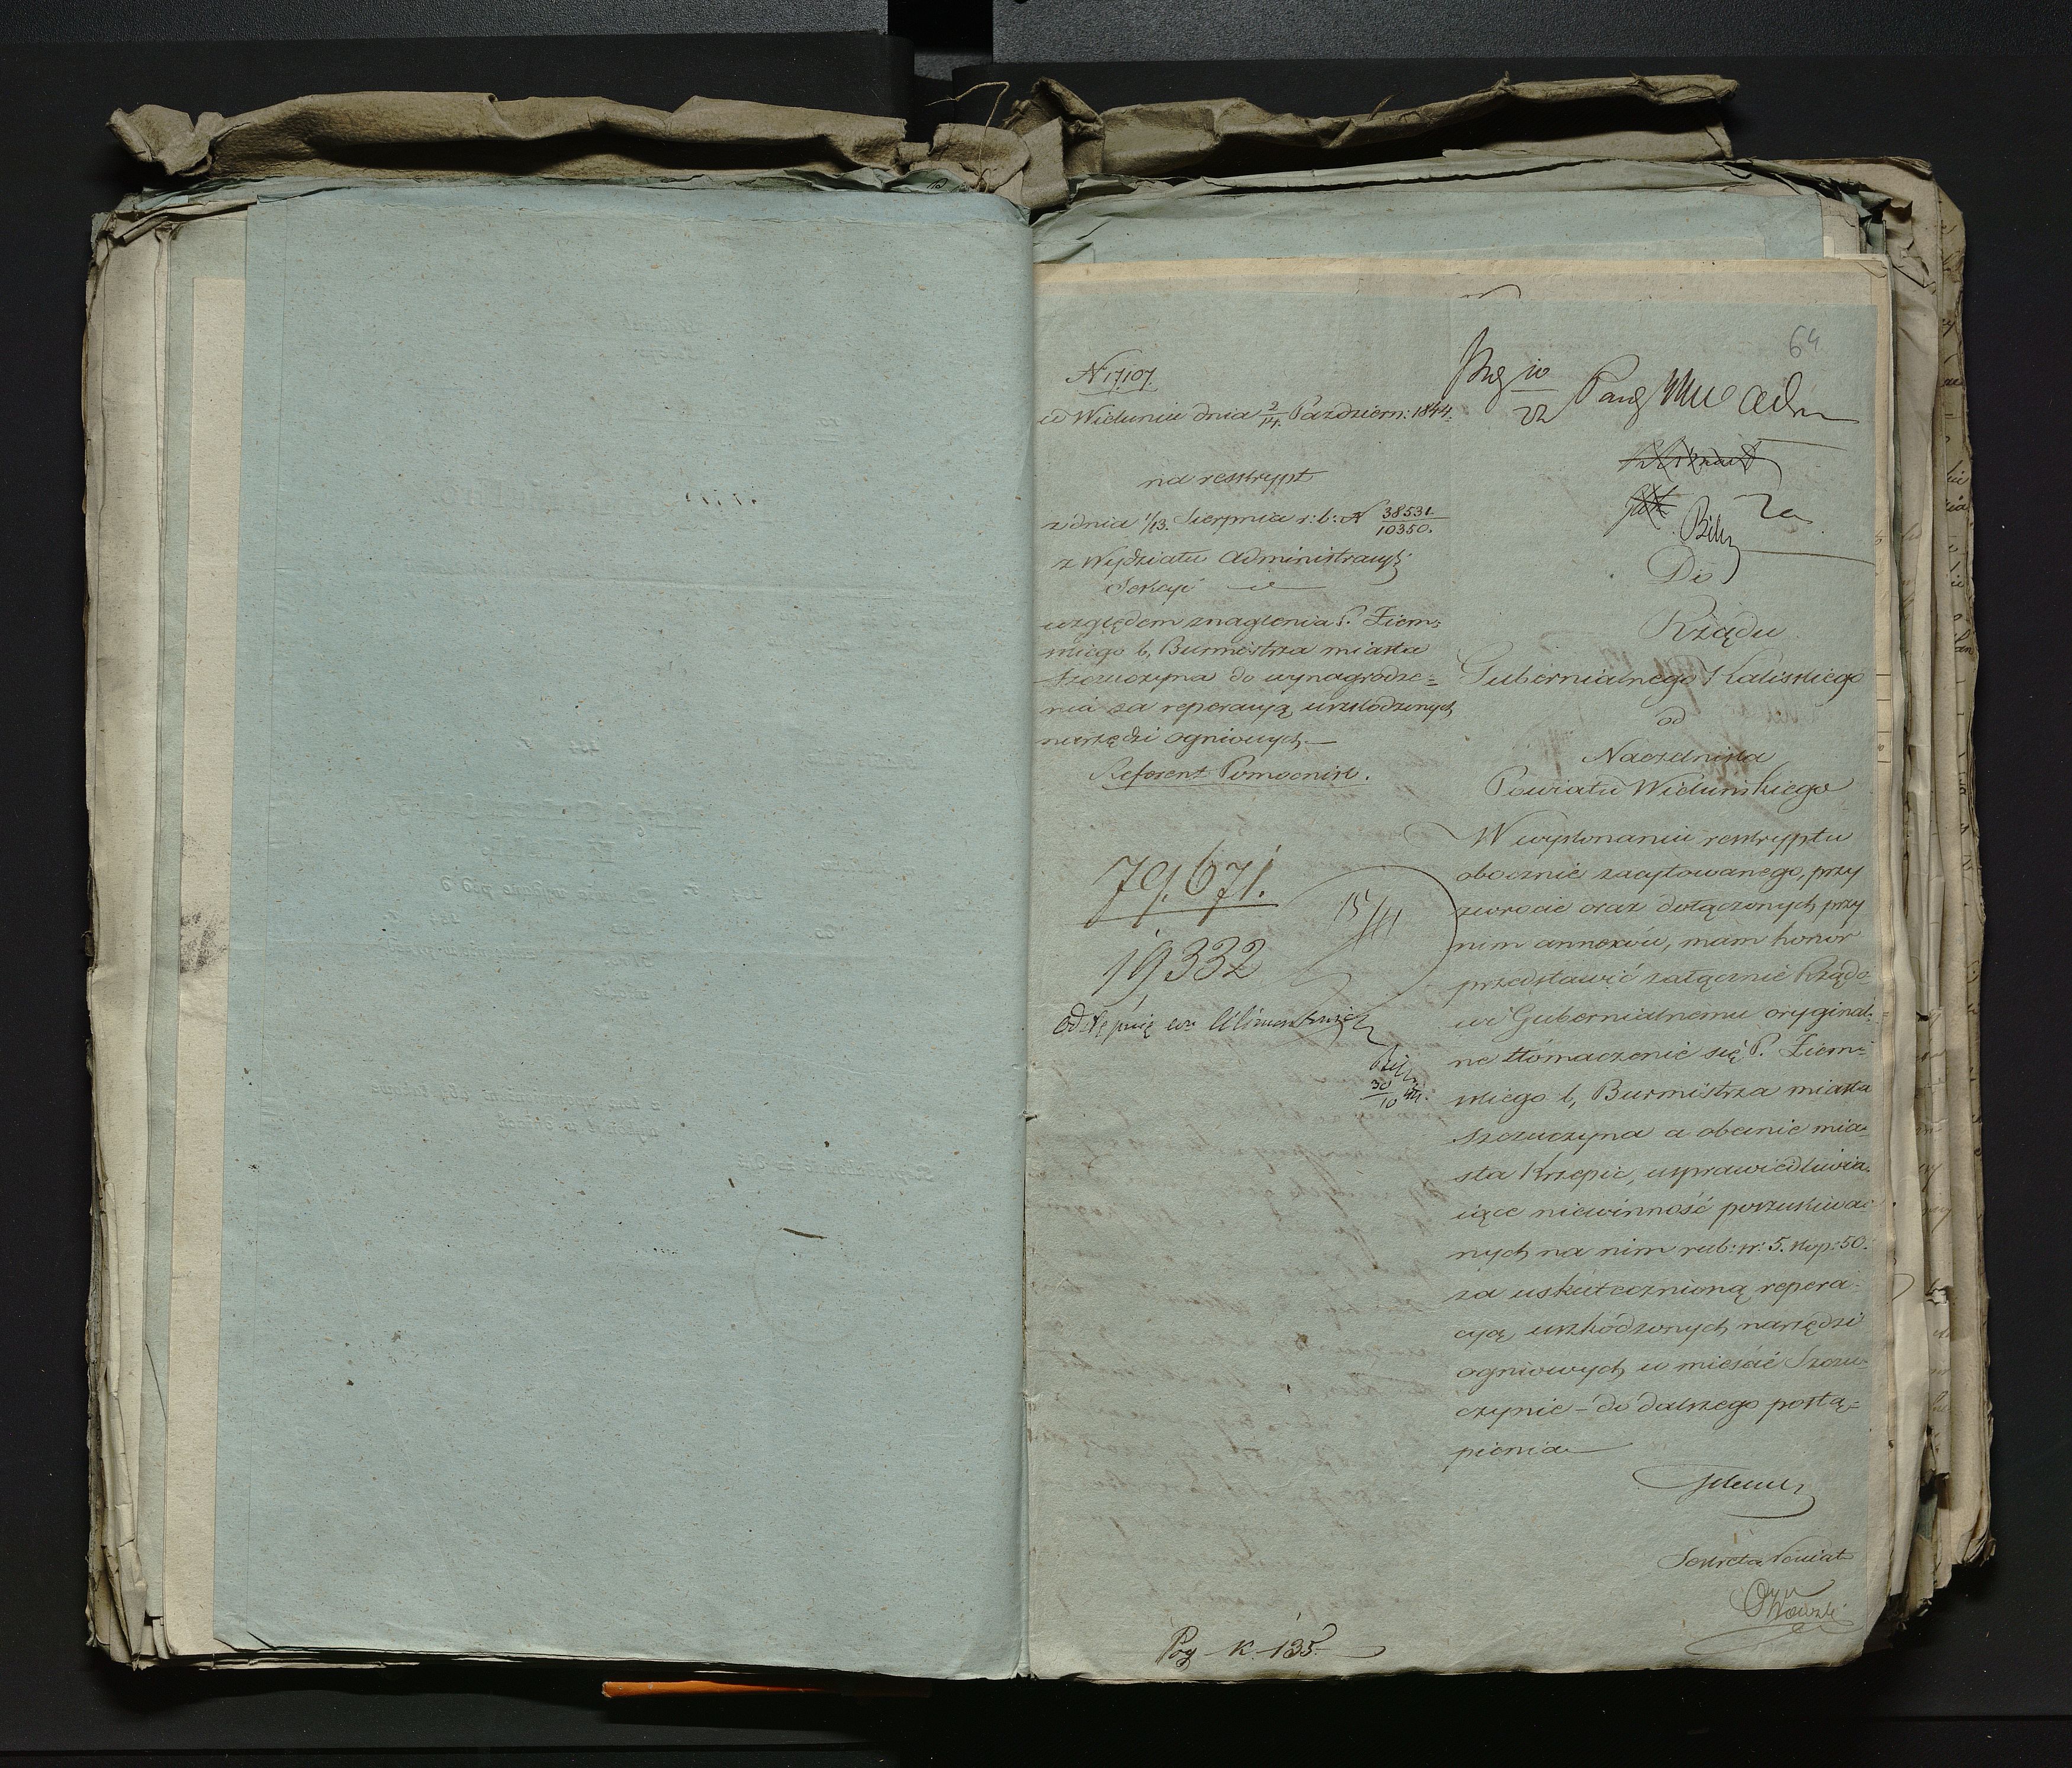 64
N 17107.
w Wieluniu dnia 2/14. Październ: 1844.
na reskrypt
z dnia 1/13. Sierpnia r: b: N 38531./10350.
z Wydziału Administracyj
Sekcyi
względem znaglenia P. Ziem=
skiego b, Burmistrza miasta
Szczuczyna do wynagrodze=
nia za reperacyą uszkodzonych
narzędzi ogniowych.—
Referent Pomocnik.
79,671.
19332
15/11
30/10 44.
Do
Rządu
Gubernialnego Kaliskiego
od
Naczelnika
Powiatu Wieluńskiego
W wykonaniu reskryptu
obocznie zacytowanego, przy
zwrocie oraz dołączonych przy
nim annexów, mam honor
przedstawić załącznie Rządo=
wi Gubernialnemu oryginal=
ne tłómaczenie się P. Ziem=
skiego b, Burmistrza miasta
Szczuczyna a obecnie mia=
sta Krzepic, usprawiedliwia=
iące niewinność poszukiwa=
nych na nim rub: sr: 5. kop: 50.
za uskutecznioną repera=
cyą uszkodzonych narzędzi
ogniowych w mieście Szczu=
czynie – do dalszego postą=
pienia
Sekreta. Powiat
Pog – K. – 135.